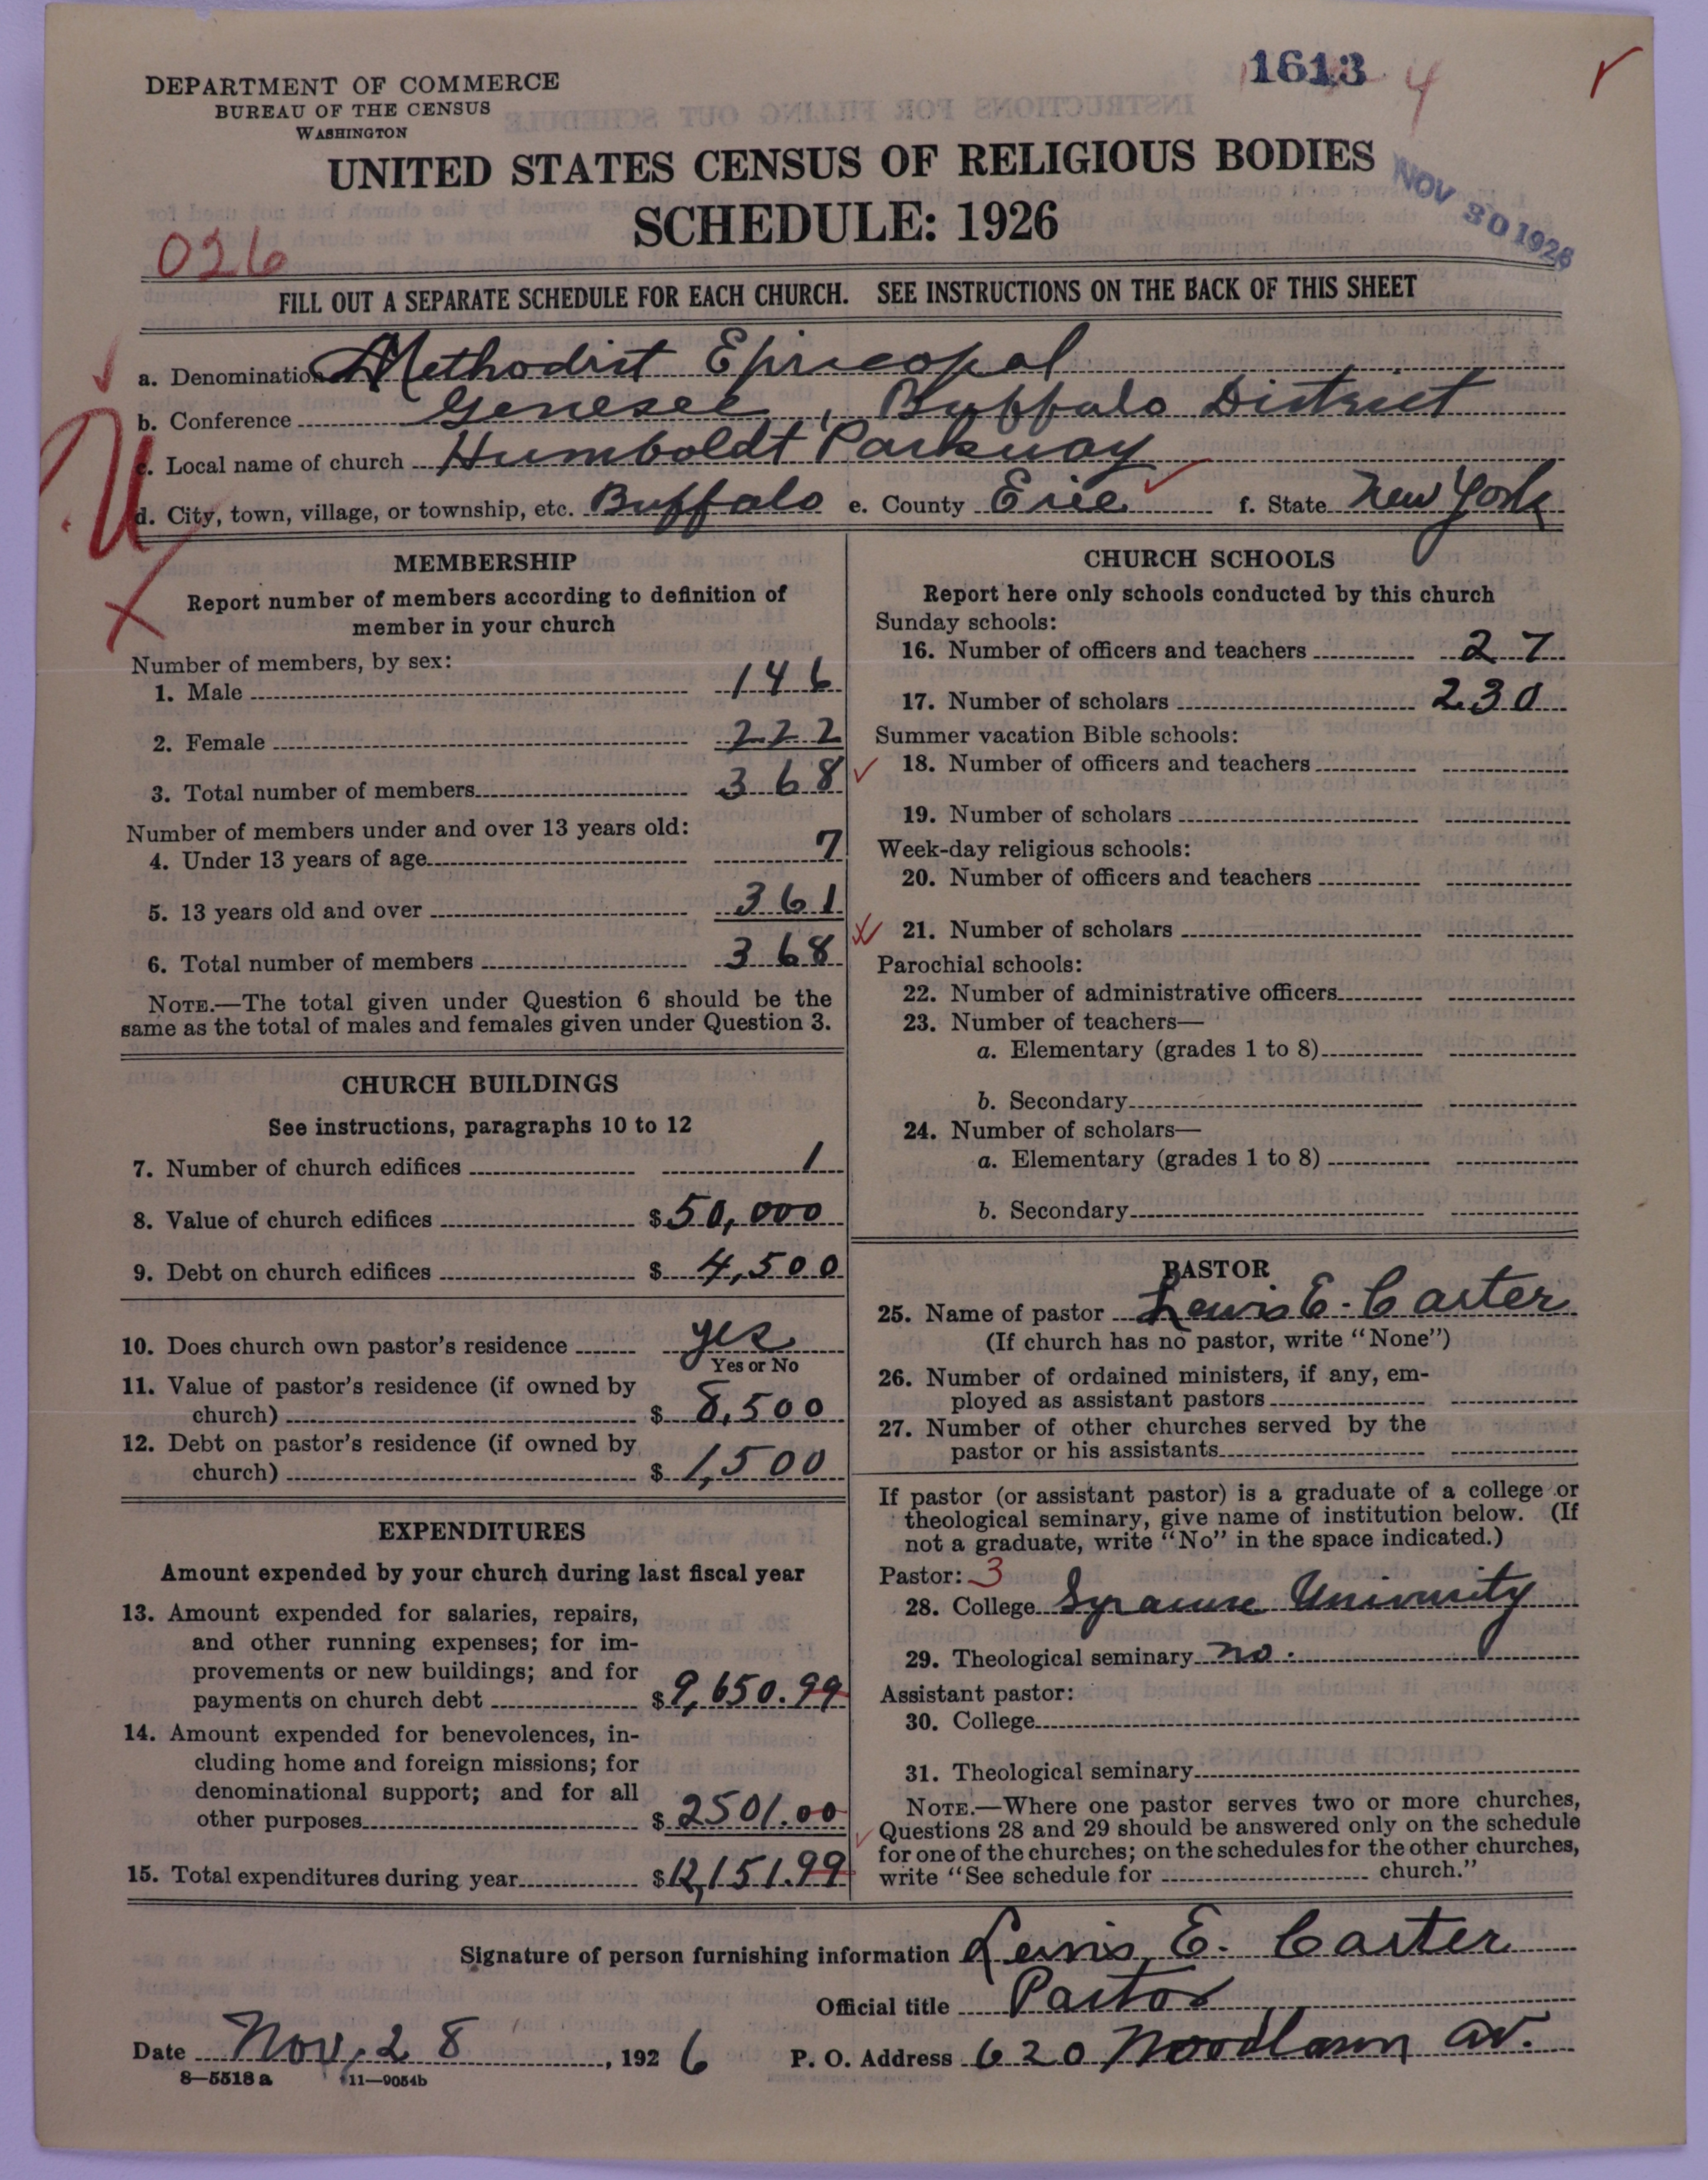 1613 4
DEPARTMENT OF COMMERCE
BUREAU OF THE CENSUS
WASHINGTON
UNITED STATES CENSUS OF RELIGIOUS BODIES
SCHEDULE: 1926
NOV 30 1926
026
FILL OUT A SEPARATE SCHEDULE FOR EACH CHURCH. SEE INSTRUCTIONS ON THE BACK OF THIS SHEET
a. Denomination Methodist Episcopal
b. Conference Genesee, Buffalo District
c. Local name of church Humboldt Parkway
d. City, town, village, or township, etc. Buffalo e. County Erie f. State New York
MEMBERSHIP
Report number of members according to definition of
member in your church
Number of members, by sex:
1. Male 146
2. Female 222
3. Total number of members 368
Number of members under and over 13 years old:
4. Under 13 years of age 7
5. 13 years old and over 361
6. Total number of members 368
NOTE.—The total given under Question 6 should be the
same as the total of males and females given under Question 3.
CHURCH BUILDINGS
See instructions, paragraphs 10 to 12
7. Number of church edifices 1
8. Value of church edifices $50,000
9. Debt on church edifices $4,500
10. Does church own pastor's residence yes
Yes or No
11. Value of pastor's residence (if owned by
church) $8,500
12. Debt on pastor's residence (if owned by
church) $1,500
EXPENDITURES
Amount expended by your church during last fiscal year
13. Amount expended for salaries, repairs,
and other running expenses; for im-
provements or new buildings; and for
payments on church debt $9,650.99
14. Amount expended for benevolences, in-
cluding home and foreign missions; for
denominational support; and for all
other purposes $2501.00
15. Total expenditures during year $12,151.99
CHURCH SCHOOLS
Report here only schools conducted by this church
Sunday schools:
16. Number of officers and teachers 27
17. Number of scholars 230
Summer vacation Bible schools:
18. Number of officers and teachers
19. Number of scholars
Week-day religious schools:
20. Number of officers and teachers
21. Number of scholars
Parochial schools:
22. Number of administrative officers
23. Number of teachers—
a. Elementary (grades 1 to 8)
b. Secondary
24. Number of scholars—
a. Elementary (grades 1 to 8)
b. Secondary
PASTOR
25. Name of pastor Lewis E. Carter
(If church has no pastor, write "None")
26. Number of ordained ministers, if any, em-
ployed as assistant pastors
27. Number of other churches served by the
pastor or his assistants
If pastor (or assistant pastor) is a graduate of a college or
theological seminary, give name of institution below. (If
not a graduate, write "No" in the space indicated.)
Pastor: 3
28. College Syracuse University
29. Theological seminary no.
Assistant pastor:
30. College
31. Theological seminary
NOTE.—Where one pastor serves two or more churches,
Questions 28 and 29 should be answered only on the schedule
for one of the churches; on the schedules for the other churches,
write "See schedule for church."
Signature of person furnishing information Lewis E. Carter
Official title Pastor
Date Nov. 28, 1926 P. O. Address 620 Woodlawn Av.
8—5518 a 11—9054b